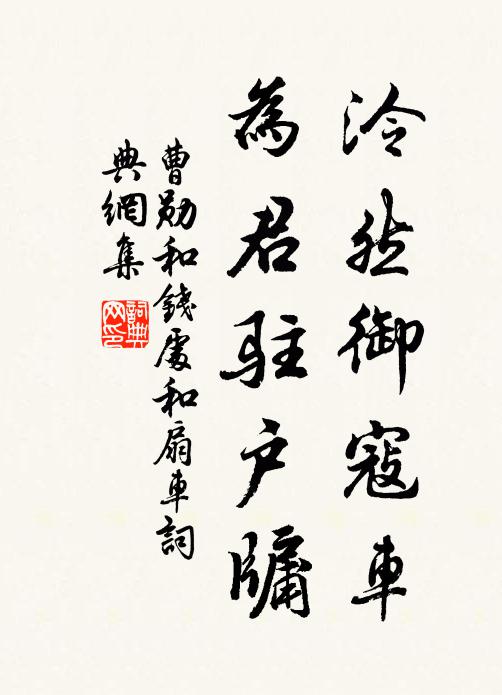 泠然御寇車
為君駐户牖
曹勛和錢處和扇車詞
典網集
詞典
网印